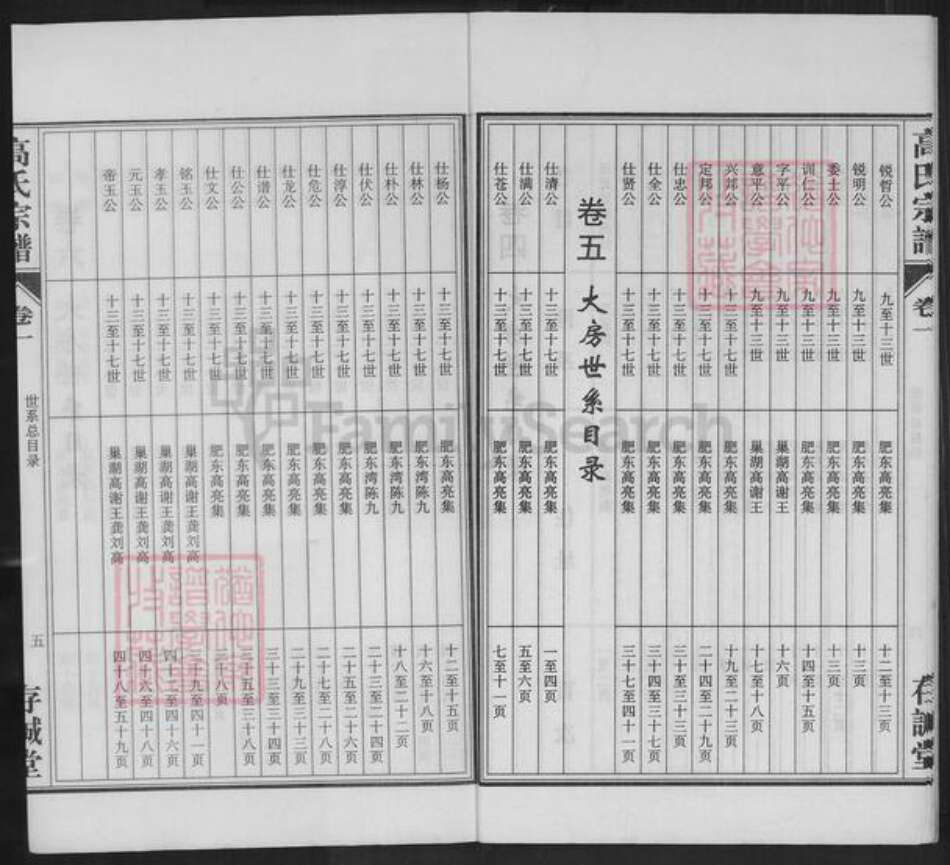 高氏宗譜 卷一 存誠堂
锐哲公 九至十三世 肥东高亮集 十二至十三页
锐明公 九至十三世 肥东高亮集 十三页
委土公 九至十三世 肥东高亮集 十三页
训仁公 九至十三世 肥东高亮集 十四至十五页
字平公 九至十三世 巢湖高谢王 十六页
意平公 九至十三世 巢湖高谢王 十七至十八页
兴邦公 十三至十七世 肥东高亮集 十九至二十三页
定邦公 十三至十七世 肥东高亮集 二十四至二十九页
仕忠公 十三至十七世 肥东高亮集 三十至三十三页
仕全公 十三至十七世 肥东高亮集 三十四至三十七页
仕贤公 十三至十七世 肥东高亮集 三十七至四十一页
卷五 大房世系目录
仕清公 十三至十七世 肥东高亮集 一至四页
仕满公 十三至十七世 肥东高亮集 五至六页
仕苍公 十三至十七世 肥东高亮集 七至十一页
仕杨公 十三至十七世 肥东高亮集 十二至十五页
仕林公 十三至十七世 肥东湾陈九 十六至十八页
仕朴公 十三至十七世 肥东湾陈九 十八至二十二页
仕伏公 十三至十七世 肥东湾陈九 二十三至二十四页
仕淳公 十三至十七世 肥东高亮集 二十五至二十六页
仕危公 十三至十七世 肥东高亮集 二十七至二十八页
仕龙公 十三至十七世 肥东高亮集 二十九至三十三页
仕谱公 十三至十七世 肥东高亮集 三十三至三十四页
仕公公 十三至十七世 肥东高亮集 三十五至三十八页
仕文公 十三至十七世 肥东高亮集 三十八页
铭玉公 十三至十七世 巢湖高谢王龚刘高 三十九至四十一页
孝玉公 十三至十七世 巢湖高谢王龚刘高 四十二至四十六页
元玉公 十三至十七世 巢湖高谢王龚刘高 四十六至四十八页
帝玉公 十三至十七世 巢湖高谢王龚刘高 四十八至五十九页
高氏宗譜 卷一 世系总目录 五 存誠堂
FamilySearch